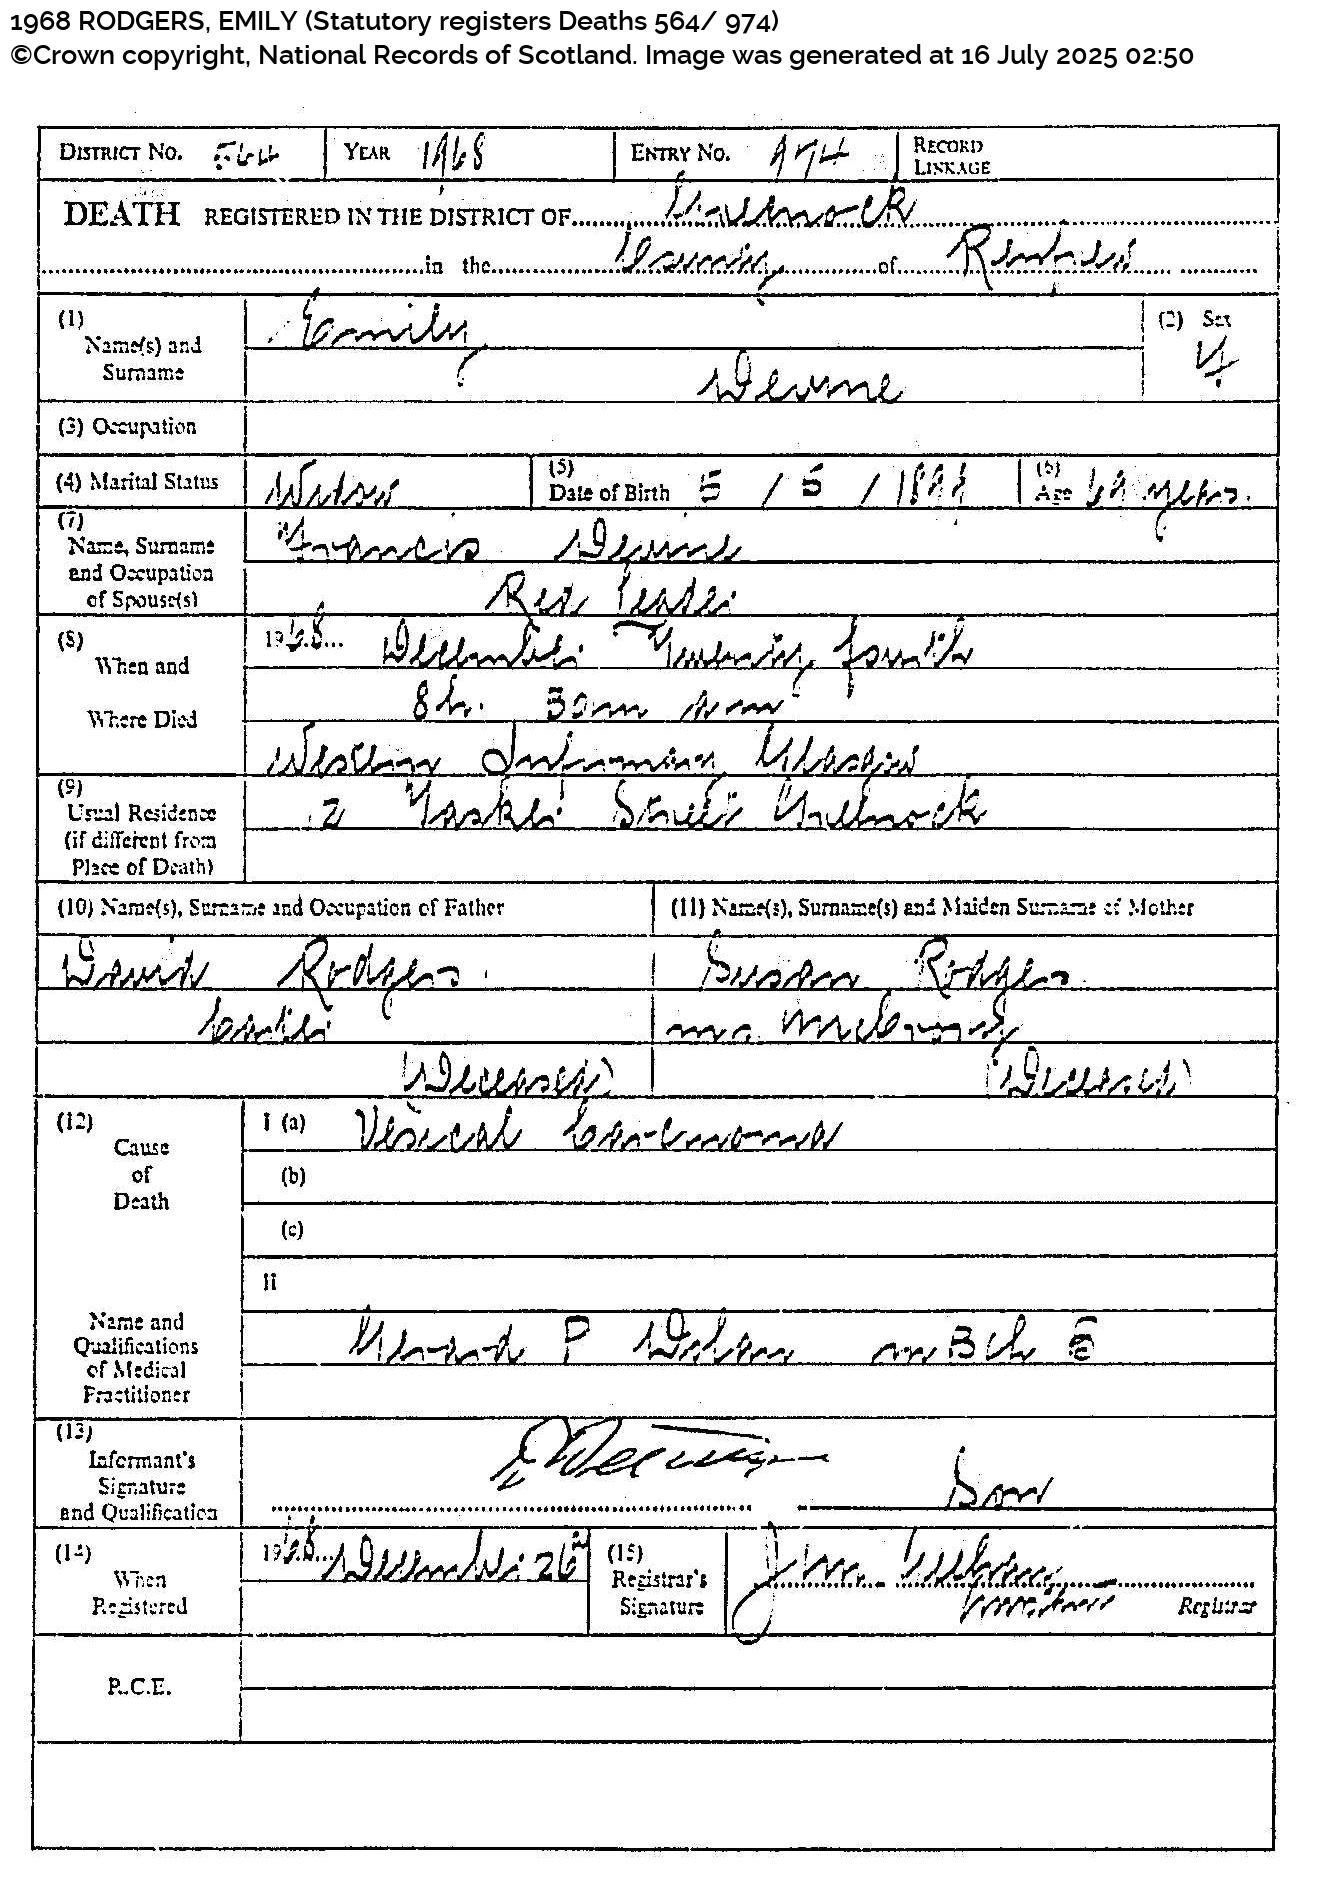 1968 RODGERS, EMILY (Statutory registers Deaths 564/ 974)
©Crown copyright, National Records of Scotland. Image was generated at 16 July 2025 02:50
DISTRICT NO. 564 YEAR 1968 ENTRY NO. 974 RECORD LINKAGE
DEATH REGISTERED IN THE DISTRICT OF Greenock
in the County of Renfrew
(1) Name(s) and Surname Emily
Devine
(2) Sex F
(3) Occupation
(4) Marital Status Widow (5) Date of Birth 5 / 5 / 1899 (6) Age 69 years.
(7) Name, Surname and Occupation of Spouse(s) Francis Devine
Red Leader
(8) When and Where Died 1968 December Twenty fourth
8h. 30m pm
Western Infirmary Glasgow
(9) Usual Residence (if different from Place of Death) 2 Tasker Street Greenock
(10) Name(s), Surname and Occupation of Father
(11) Name(s), Surname(s) and Maiden Surname of Mother
David Rodgers Susan Rodgers
Carter m.s.
(Deceased) (Deceased)
(12) Cause of Death I (a) Vesical Carcinoma
(b)
(c)
II
Name and Qualifications of Medical Practitioner Gerard P Dolan MBChB
(13) Informant's Signature and Qualification Son
(14) When Registered 1968 December 26th (15) Registrar's Signature J M
Registrar
R.C.E.